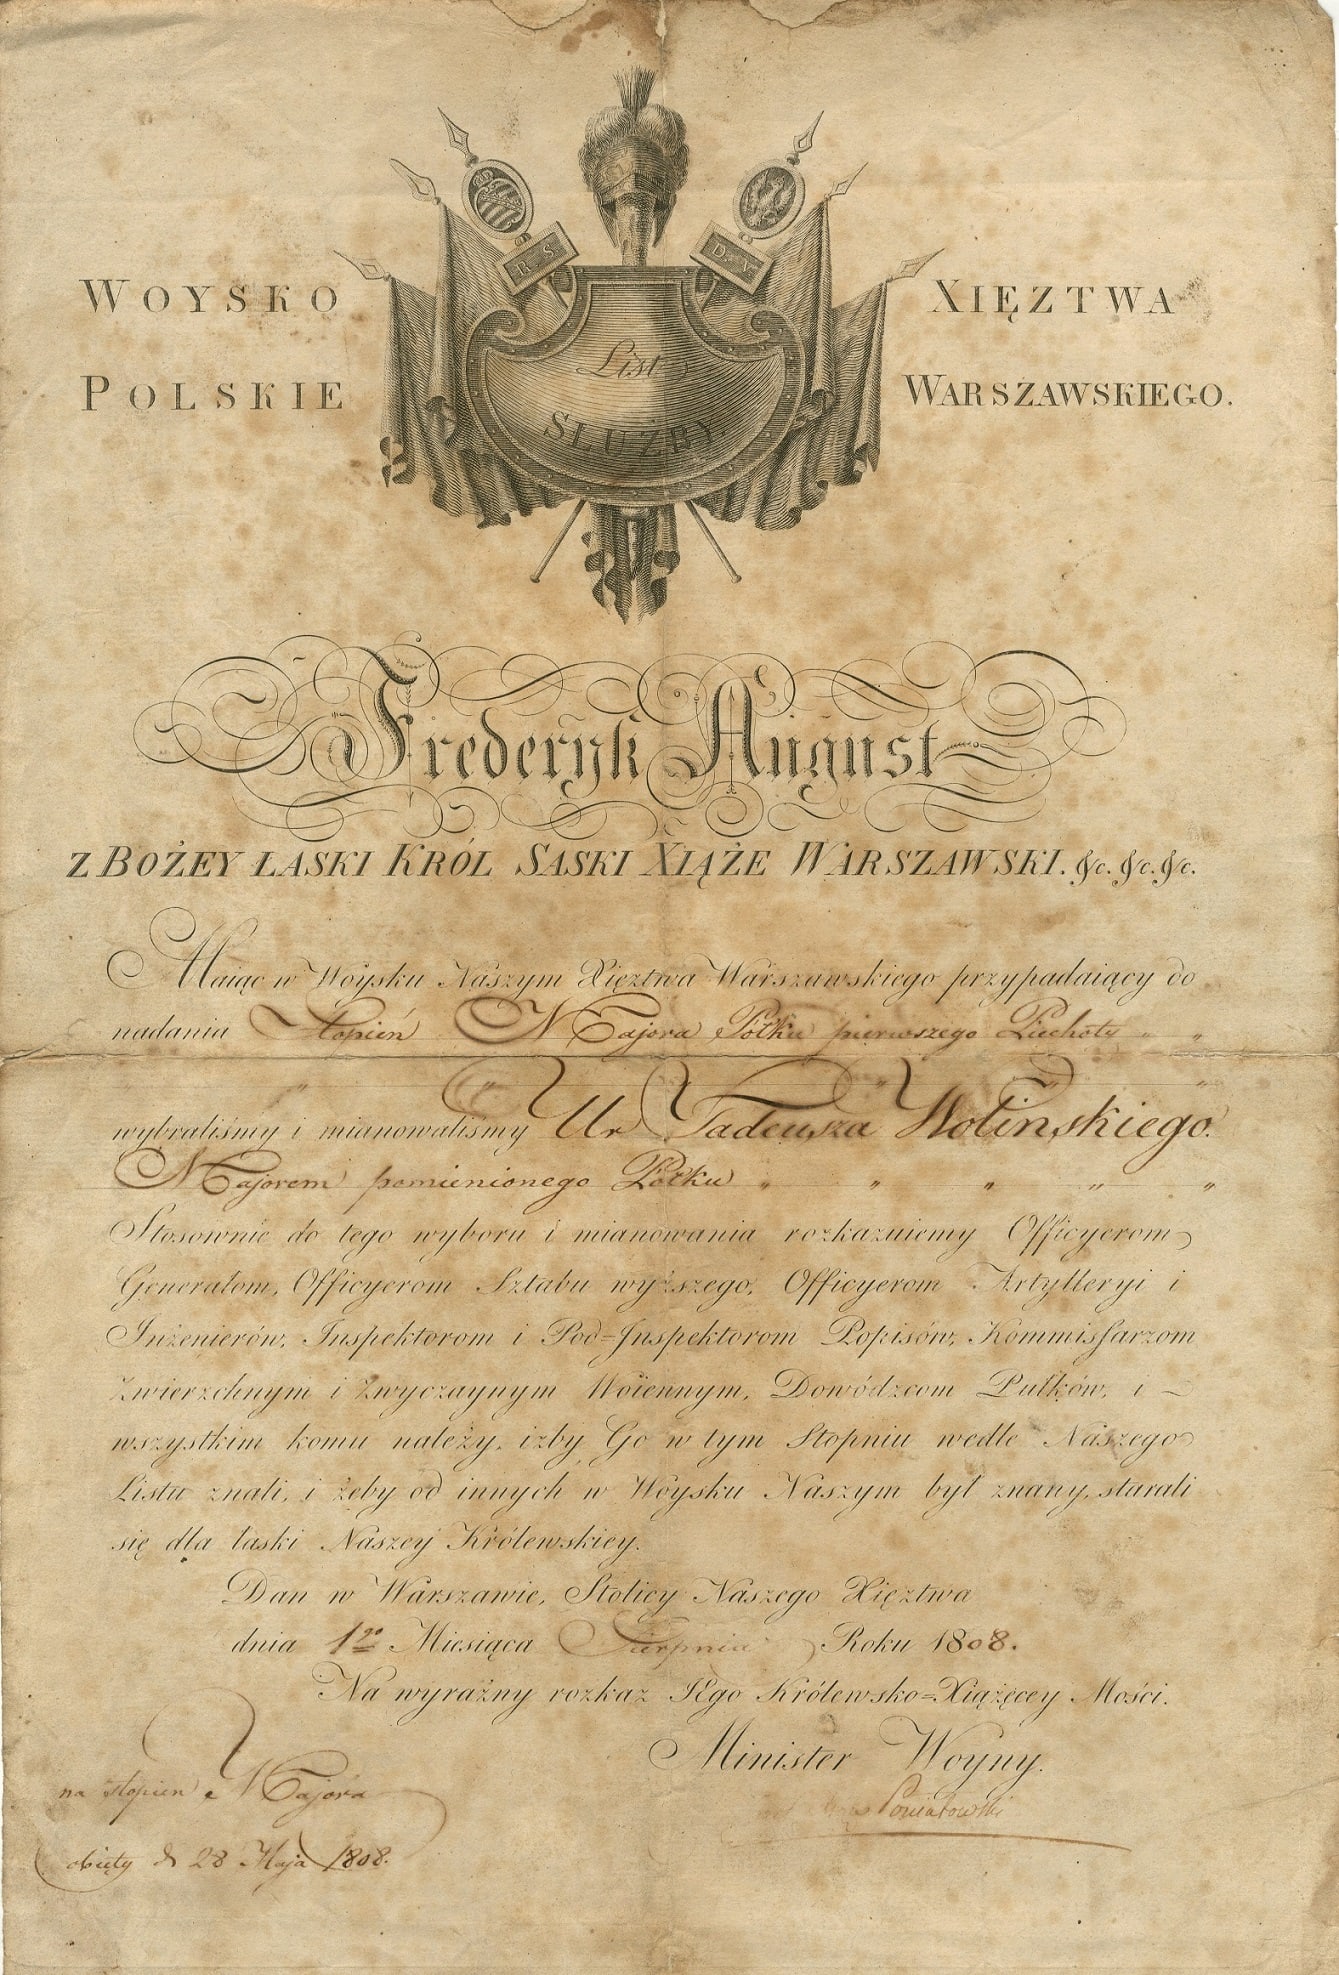 WOYSKO XIĘZTWA
POLSKIE WARSZAWSKIEGO.
R. S. D. V.
List
SŁUŻBY
Fryderyk August
Z BOŻEY ŁASKI KRÓL SASKI XIĄŻE WARSZAWSKI. &c. &c. &c.
Maiąc w Woysku Naszym Xięztwa Warszawskiego przypadaiący do
nadania Stopień Majora Półku pierwszego Piechoty " "
wybraliśmy i mianowaliśmy Ur Tadeusza Wolinskiego.
Majorem pomienionego Półku " " " " "
Stosownie do tego wyboru i mianowania rozkazuiemy Officyerom
Generałom, Officyerom Sztabu wyższego, Officyerom Artylleryi i
Inżenierów, Inspektorom i Pod=Inspektorom Popisów, Kommissarzom
Zwierzchnym i Zwyczaynym Woiennym, Dowódzcom Pułków, i
wszystkim komu należy, iżby Go w tym Stopniu wedle Naszego
Listu znali, i żeby od innych w Woysku Naszym był znany, starali
się dla łaski Naszey Królewskiey.
Dan w Warszawie, Stolicy Naszego Xięztwa
dnia 1go Miesiąca Sierpnia Roku 1808.
Na wyraźny rozkaz JEgo Królewsko=Xiążęcey Mości.
Minister Woyny.
Poniatowski
na stopień Majora
obięty d 28 Maja 1808.